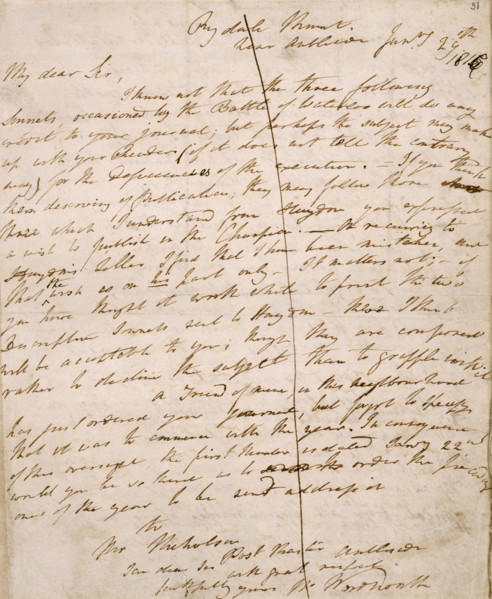 31
Rydale Mount.
near Ambleside Janry 29th
1816
My dear Sir,
I know not that the three following
Sonnets, occasioned by the Battle of Waterloo will do any
credit to your Journal; but perhaps the subject may make
up with your Readers (if it does not tell the contrary
way) for the deficiencies of the execution. — If you think
them deserving of Publication, they may follow those
three which I understand from Haydon you expressed
a wish to publish in the Champion. — On recurring to
Haydon's letter I find that I have been mistaken, and
that the wish is on his part only — It matters not; if
you have thought it worth while to print the two
Sonnets sent to Haydon — these I think
will be acceptable to you; though they are composed
rather to decline the subject than to grapple with it
A Friend of mine, in this neighbourhood
has just ordered your Journal, but forgot to specify
that it was to commence with the year. In consequence
of this oversight the first Number is dated Janry 22nd
would you be so kind as to order the preceding
ones of the year to be sent address'd
to
Mr Nicholson
Post Master Ambleside
I am dear Sir with great respect
faithfully yours Wm Wordsworth